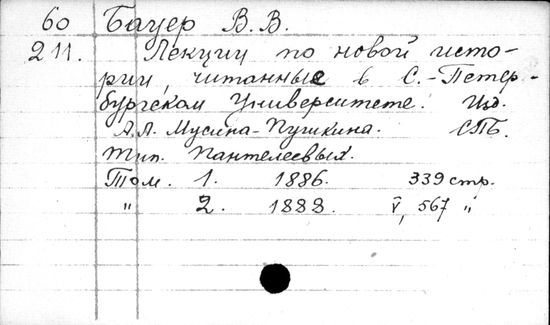 60 Бауер В. В.
211. Лекции по новой исто-
рии, читанные в С.-Петер-
бургском Университете. Изд.
А.А. Мусина-Пушкина. СПБ.
Тип. Пантелеевых.
Том. 1. 1886. 339 стр.
" 2. 1888. V, 567 "